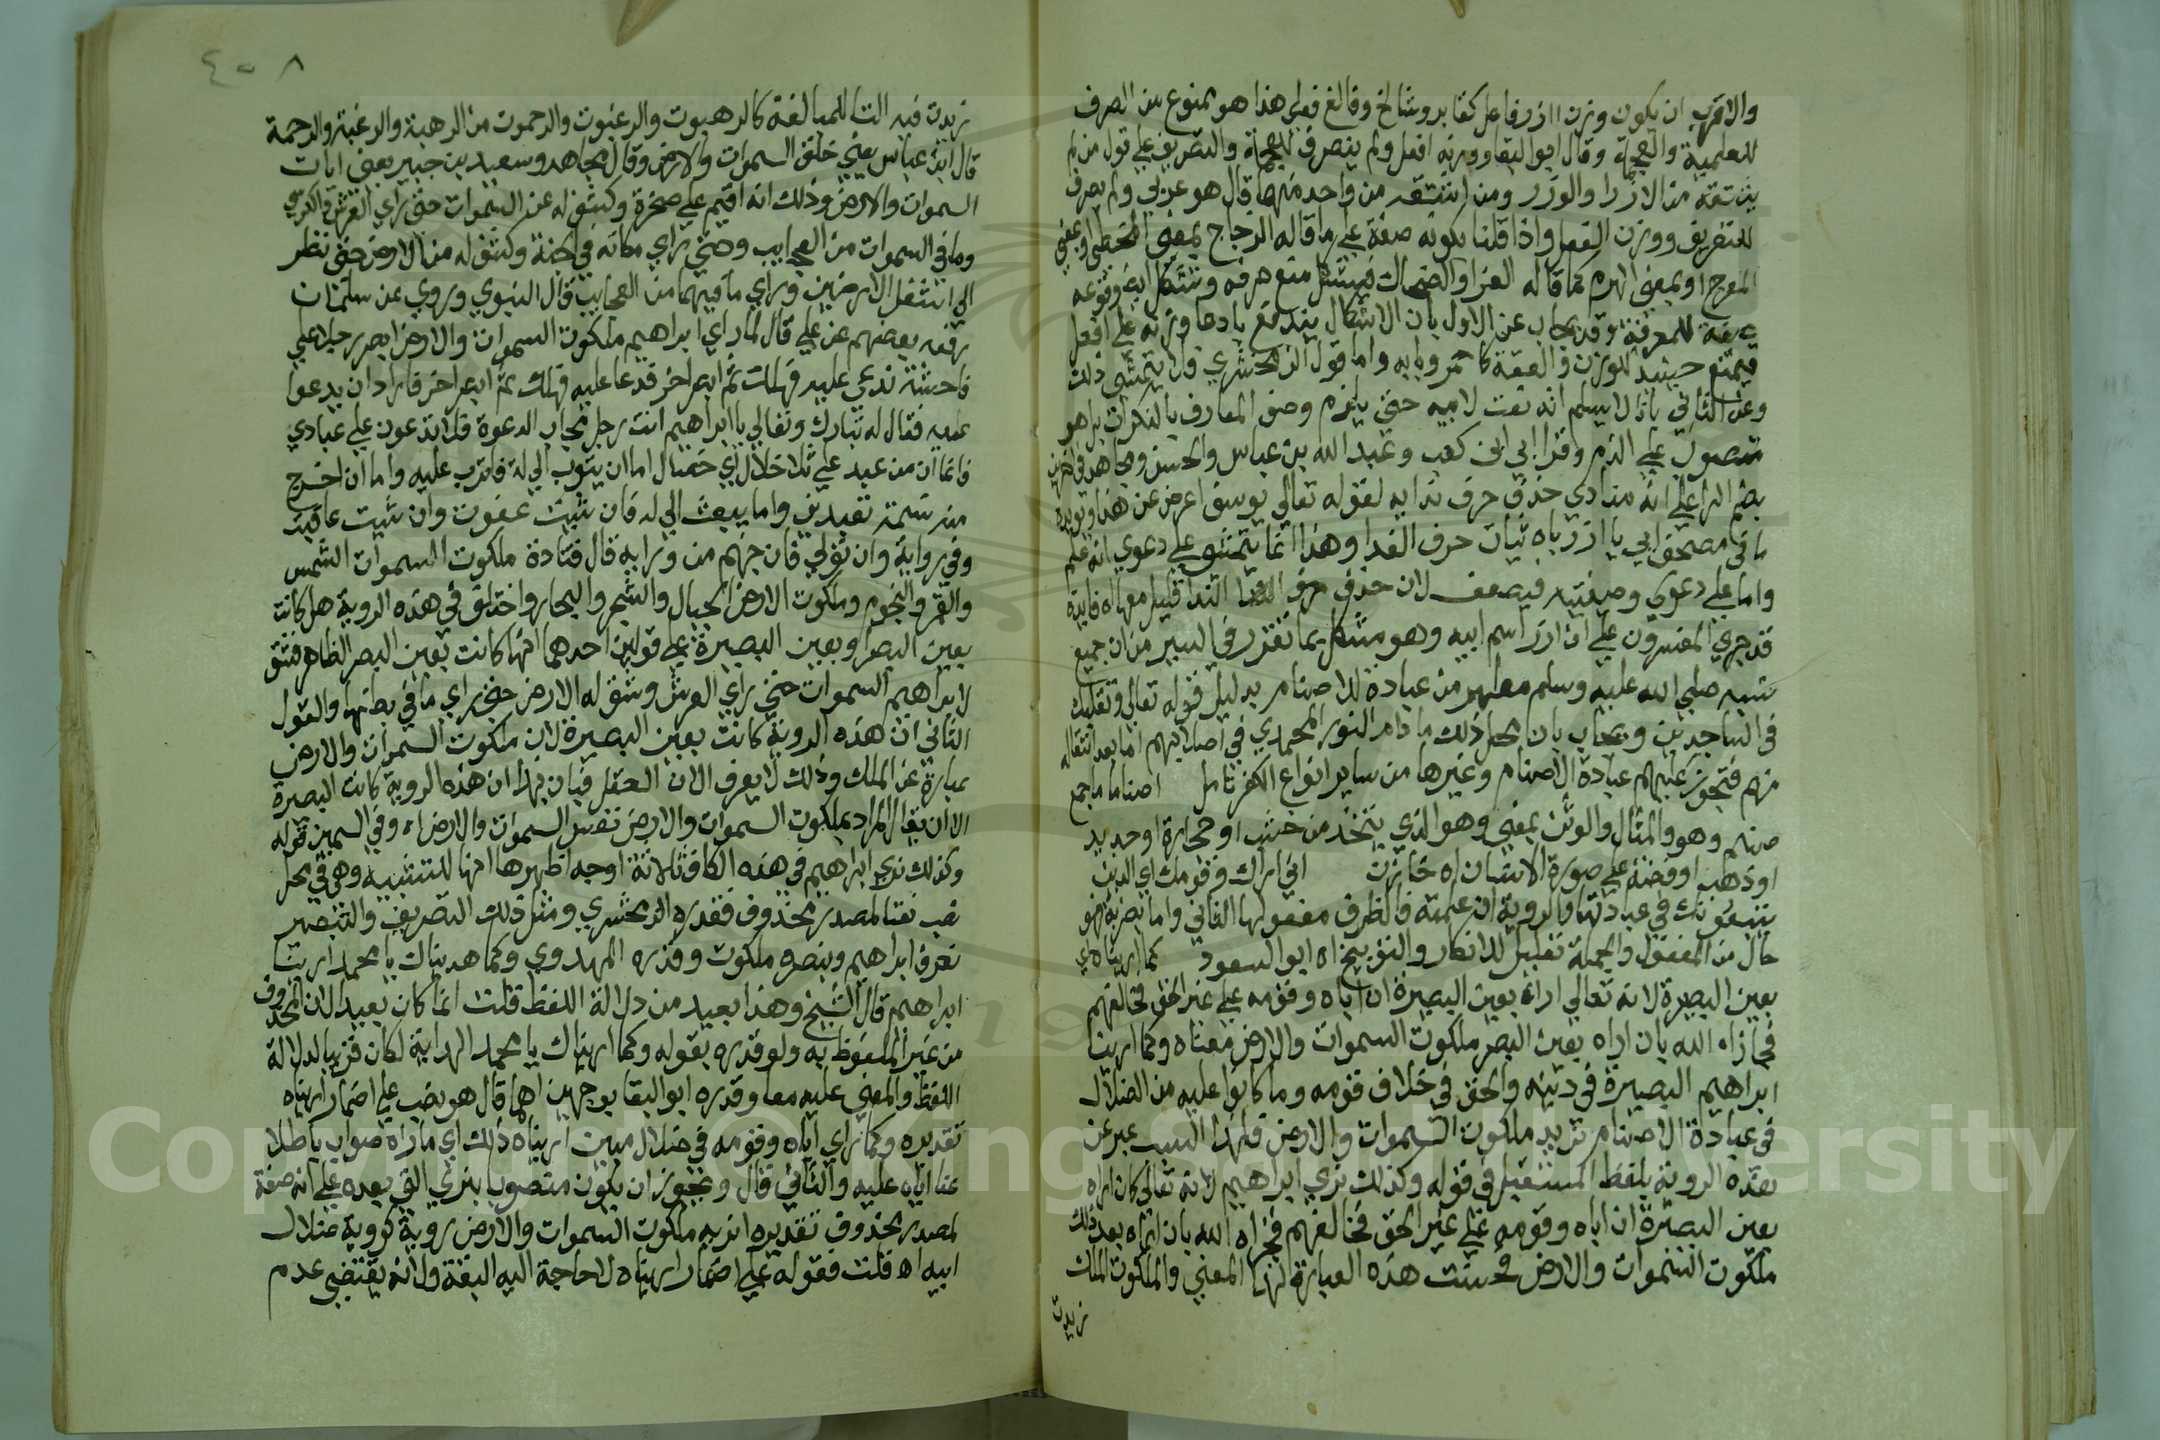 والاقرب ان يكون وزن اازر فاعل كعابر وشالخ وفالغ فعلي هذا هو ممنوع من الصرف
للعلمية والعجمة وقال ابو البقا ووزنه افعل ولم ينصرف للعجمة والتعريف علي قول من لم
يشتقه من الازر او الوزر ومن اشتقه من واحد منهما قال هو عربي ولم يصرف
للتعريف ووزن الفعل واذا قلنا بكونه صفة علي ما قاله الزجاج بمعني المخطي او بمعني
المعوج او بمعني الهرم كما قاله الفرا والضحاك فيشكل منع صرفه وتشكل ايضا وقوعه
صفة للمعرفة وقد يجاب عن الاول بان الاشكال يندفع بادعا وزنه علي افعل
فيمتنع حينيذ للوزن والصفة كاحمر وبابه واما قول الزمخشري فلا يتمشي ذلك
وعن الثاني بانا لا نسلم انه نعت لابيه حتي يلزم وصف المعارف بالنكرات بل هو
منصوب علي الذم وقرا ابي ابن كعب وعبد الله بن عباس والحسن ومجاهد في اخرين
بضم الرا علي انه منادي حذف حرف ندايه لقوله تعالي يوسف اعرض عن هذا ويويده
ما في مصحف ابي يا ازر باثبات حرف الندا وهذا انما يتمشي علي دعوي انه علم
واما علي دعوي وصفيته فيضعف لان حذف حرف الندا قليل معها اه فايدة
قد جري المفسرون علي ان ازر اسم ابيه وهو مشكل بما تقرر في السير من ان جميع
نسبه صلي الله عليه وسلم مطهر من عبادة الاصنام بدليل قوله تعالي وتقلبك
في الساجدين ويجاب بان محل ذلك ما دام النور المحمدي في اصلابهم اما بعد انتقاله
منهم فتجوز عليهم عبادة الاصنام وغيرها من ساير انواع الكفر تامل اصناما جمع
صنم وهو والمثال والوثن بمعني وهو الذي يتخذ من خشب او حجارة او حديد
او ذهب او فضة علي صورة الانسان اه خازن اني اراك وقومك اي الذين
يتبعونك في عبادتها والروية ان علمية فالظرف مفعولها الثاني واما بصرية فهو
حال من المفعول والجملة تعليل للانكار والتوبيخ اه ابو السعود كما اريناه اي
بعين البصيرة لانه تعالي اراه بعين البصيرة ان اباه وقومه علي غير الحق فخالفهم
فجازاه الله بان اراه بعين البصر ملكوت السموات والارض معناه وكما ارينا
ابراهيم البصيرة في دينه والحق في خلاف قومه وما كانوا عليه من الضلال
في عبادة الاصنام نريه ملكوت السموات والارض فلهذا السبب عبر عن
هذه الروية بلفظ المستقبل في قوله وكذلك نري ابراهيم لانه تعالي كان اراه
بعين البصيرة ان اباه وقومه علي غير الحق فخالفهم فجزاه الله بان اراه بعد ذلك
ملكوت السموات والارض فحسنت هذه العبارة لهذا المعني والملكوت الملك
زيدت
٤٥٨
زيدت فيه التا للمبالغة كالرهبوت والرغبوت والرحموت من الرهبة والرغبة والرحمة
قال ابن عباس يعني خلق السموات والارض وقال مجاهد وسعيد بن جبير يعني ايات
السموات والارض وذلك انه اقيم علي صخرة وكشف له عن السموات حتي راي العرش والكرسي
وما في السموات من العجايب وحتي راي مكانه في الجنة وكشف له من الارض حتي نظر
الي اسفل الارضين وراي ما فيهما من العجايب قال البغوي وروي عن سلمان
رفعه بعضهم عن علي قال لما راي ابراهيم ملكوت السموات والارض ابصر رجلا علي
فاحشة فدعي عليه فهلك ثم ابصر اخر فدعا عليه فهلك ثم ابصر اخر فاراد ان يدعوا
عليه فقال له تبارك وتعالي يا ابراهيم انت رجل مجاب الدعوة فلا تدعون علي عبادي
فانما ان من عبد علي ثلاث خلال اي خصال اما ان يتوب الي له فاتوب عليه واما ان اخرج
منه نسمة تعبدني واما يبعث الي له فان شيت عفوت وان شيت عاقبت
وفي رواية وان تولي فان جهنم من ورايه قال قتادة ملكوت السموات الشمس
والقمر والنجوم وملكوت الارض الجبال والشجر والبحار واختلف في هذه الروية هل كانت
بعين البصر او بعين البصيرة علي قولين احدهما انها كانت بعين البصر الظاهر فشق
لابراهيم السموات حتي راي العرش وشق له الارض حتي راي ما في بطنها والقول
الثاني ان هذه الروية كانت بعين البصيرة لان ملكوت السموات والارض
عبارة عن الملك وذلك لا يعرف الا ن العقل فبان بهذا ان هذه الروية كانت البصيرة
الا ان يقال المراد بملكوت السموات والارض نفس السموات والارض اه وفي السمين قوله
وكذلك نري ابراهيم في هذه الكاف ثلاثة اوجه اظهرها انها للتشبيه وهي في محل
نصب نعتا لمصدر محذوف فقدره الزمخشري ومثل ذلك التعريف والتبصير
نعرف ابراهيم ونبصره ملكوت وقدره المهدوي وكما هديناك يا محمد ارينا
ابراهيم قال الشيخ وهذا بعيد من دلالة اللفظ قلت انما كان بعيدا لان المحذوف
من غير الملفوظ به ولو قدره بقوله وكما اريناك يا محمد الهداية لكان قريبا لدلالة
اللفظ والمعني عليه معا وقدره ابو البقا بوجهين احدهما قال هو نصب علي اضمار اريناه
تقديره وكما راي اباه وقومه في ضلال مبين اريناه ذلك اي ما راه صواب باطلا
عنا اياه عليه والثاني قال ويجوز ان يكون منصوبا بنري التي بعده علي انه صفة
لمصدر محذوف تقديره نريه ملكوت السموات والارض روية كروية ضلال
ابيه اه قلت فقوله علي اضمار اريناه لا حاجة اليه البتة ولانه يقتضي عدم
Copyright © King Saud University